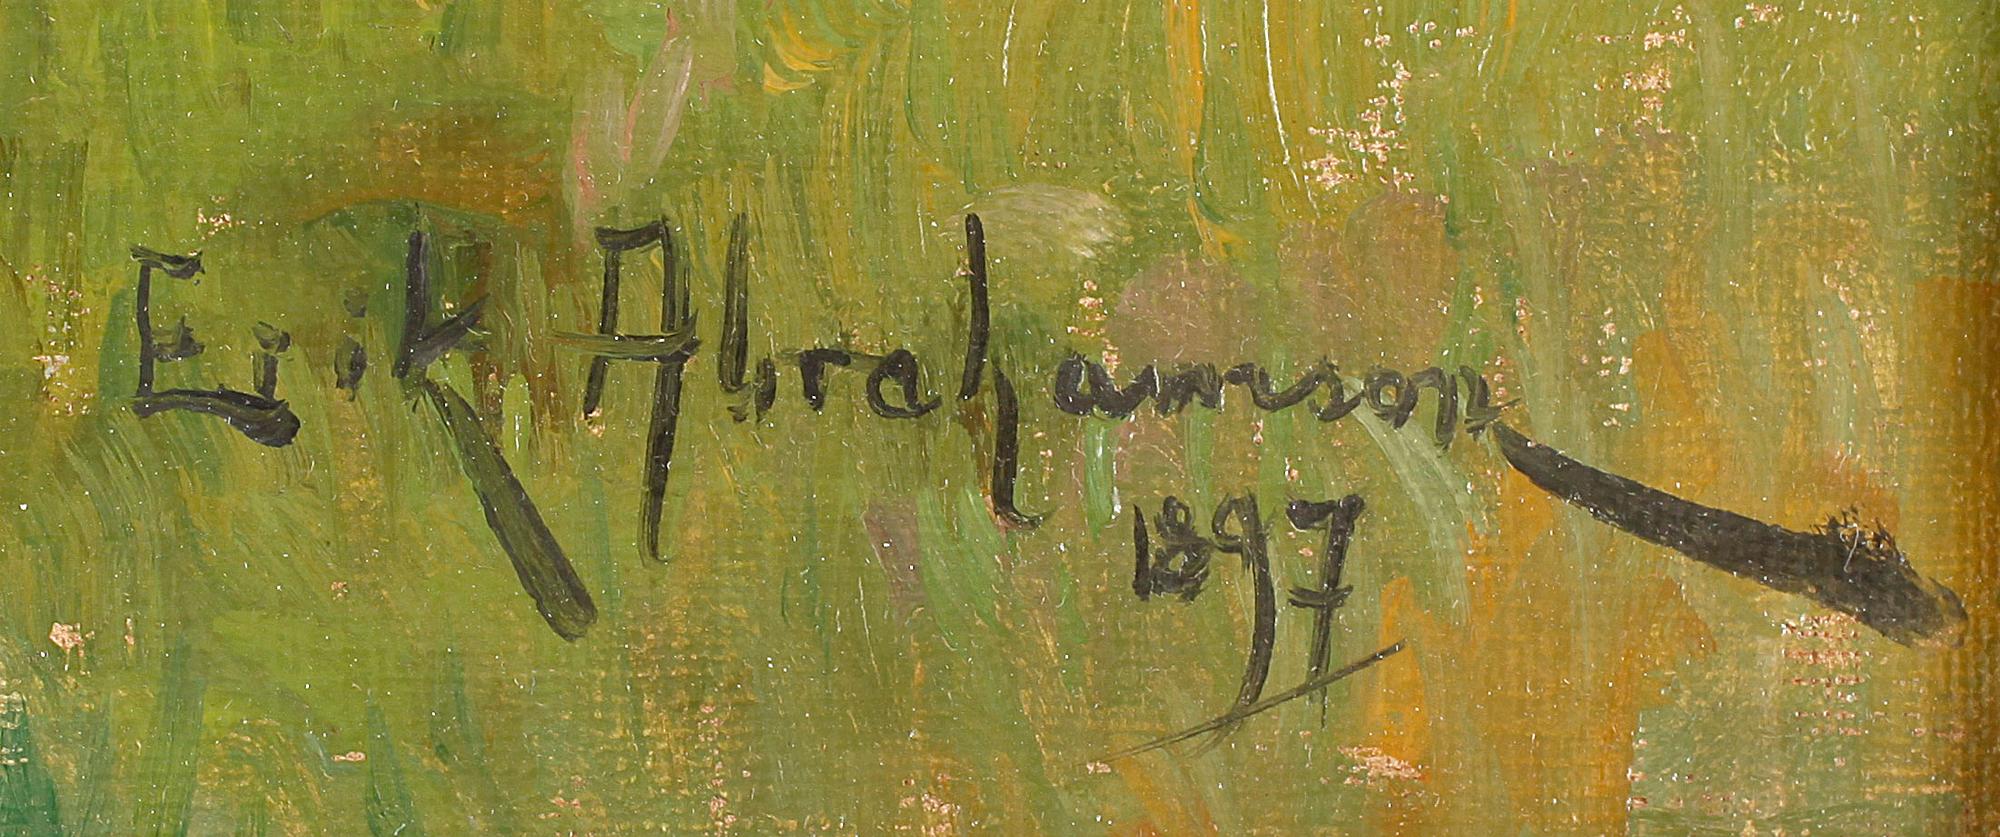 Erik Abrahamson
1897